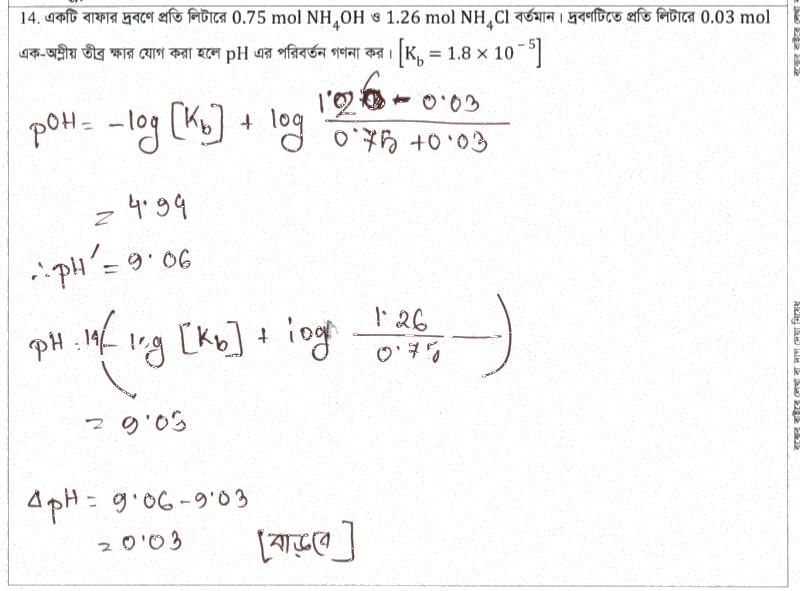 14. একটি বাফার দ্রবণে প্রতি লিটারে 0.75 mol NH₄OH ও 1.26 mol NH₄Cl বর্তমান। দ্রবণটিতে প্রতি লিটারে 0.03 mol
এক-অম্লীয় তীব্র ক্ষার যোগ করা হলে pH এর পরিবর্তন গণনা কর। [K_b = 1.8 × 10⁻⁵]
pOH = -log [K_b] + log (1.26 - 0.03)/(0.75 + 0.03)
= 4.94
∴ pH' = 9.06
pH = 14 (- log [K_b] + log 1.26/0.75)
= 9.03
Δ pH = 9.06 - 9.03
= 0.03 [বাড়বে]